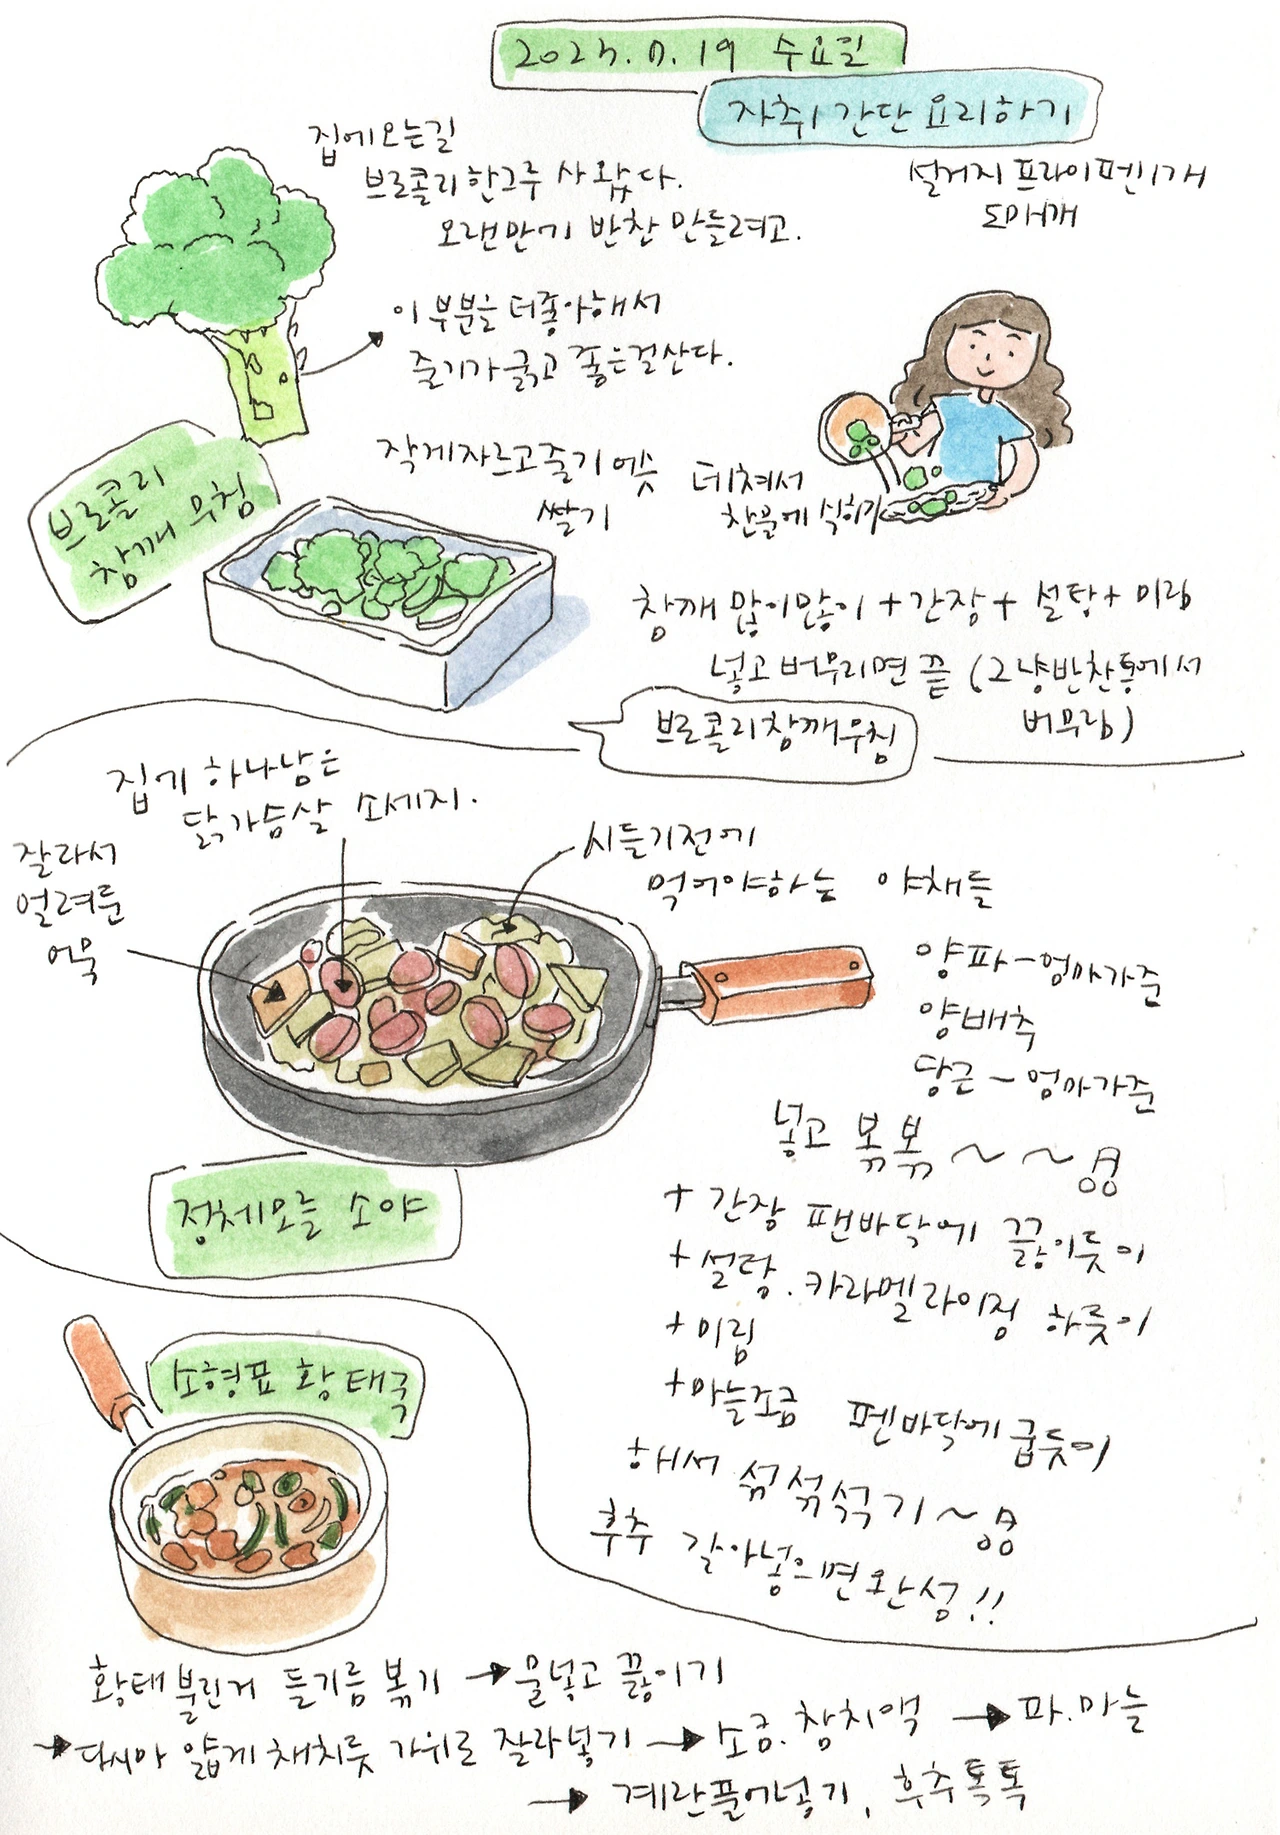 2025.7.19 수요일
자취 간단 요리하기
설거지 프라이펜1개
도마1개
집에오는길
브로콜리한그루 사 왔다.
오랜만에 반찬 만들려고.
이 부분을 더좋아해서
줄기가 굵고 좋은걸산다.
브로콜리
참깨 무침
작게자르고줄기 어슷
썰기
데쳐서
찬물에 식히기
참깨 많이많이 + 간장 + 설탕 + 미림
넣고 버무리면 끝 (그냥반찬통에서
버무림)
브로콜리참깨무침
집에 하나남은
닭가슴살 소세지.
잘라서
얼려둔
어묵
시들기전에
먹어야하는 야채들
양파-엄마가준
양배추
당근-엄마가준
넣고 볶볶~~영
+ 간장 팬바닥에 끓이듯이
+ 설탕. 카라멜라이징 하듯이
+ 미림
+ 마늘조금 펜바닥에굽듯이
해서 섞섞섞기~영
후추 갈아넣으면완성!!
정체모를 소야
소형표 황태국
황태 불린거 들기름 볶기 → 물넣고 끓이기
→ 다시마 얇게채치듯 가위로 잘라넣기 → 소금.참치액 → 파.마늘
→ 계란풀어넣기, 후추톡톡